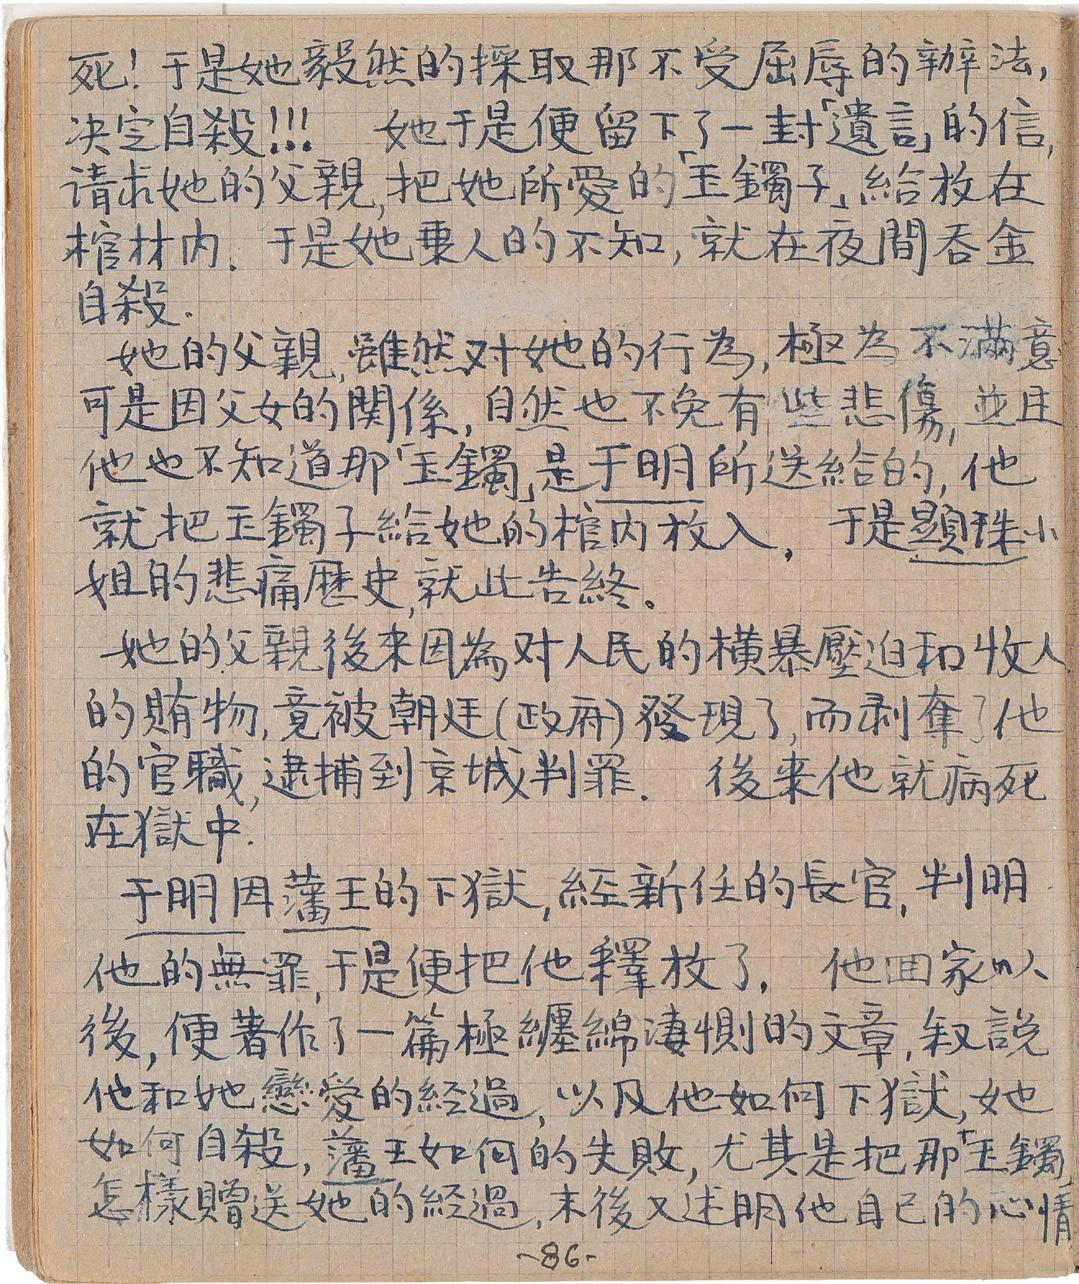 死！于是她毅然的採取那不受屈辱的辦法，
决定自殺!!!　她于是便留下了一封「遺言」的信，
请求她的父親，把她所愛的「玉鐲子」給放在
棺材内．于是她乗人的不知，就在夜間吞金
自殺．
她的父親，雖然对她的行為，極為不滿意
可是因父女的關係，自然也不免有些悲傷，並且
他也不知道那「玉鐲」是于明所送給的，他
就把玉鐲子給她的棺内放入，于是顯珠小
姐的悲痛歷史，就此告終。
她的父親後来因為对人民的横暴壓迫和收人
的賄物，竟被朝廷(政府)發現了，而剥奪了他
的官職，逮捕到京城判罪．後来他就病死
在獄中．
于明因藩王的下獄，經新任的長官，判明
他的無罪，于是便把他釋放了．他囬家以
後，便著作了一篇極纏綿淒惻的文章，叙說
他和她戀愛的經過，以及他如何下獄，她
如何自殺，藩王如何的失敗，尤其是把那「玉鐲」
怎樣贈送她的經過，末後又述明他自己的心情
-86-